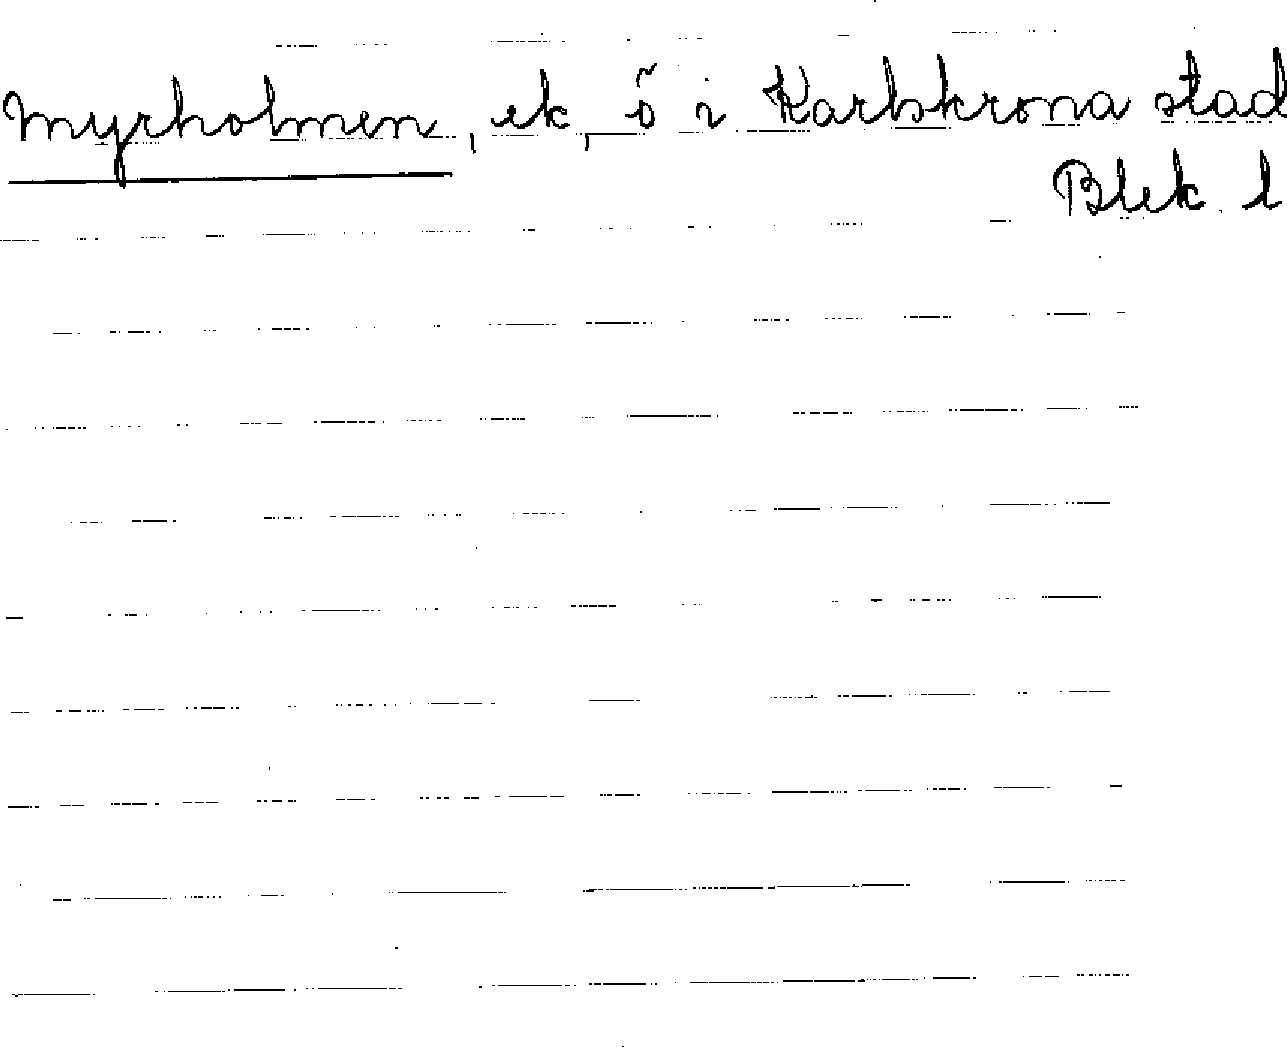 Myrholmen, ek, ö i Karlskrona stad
Blek. l